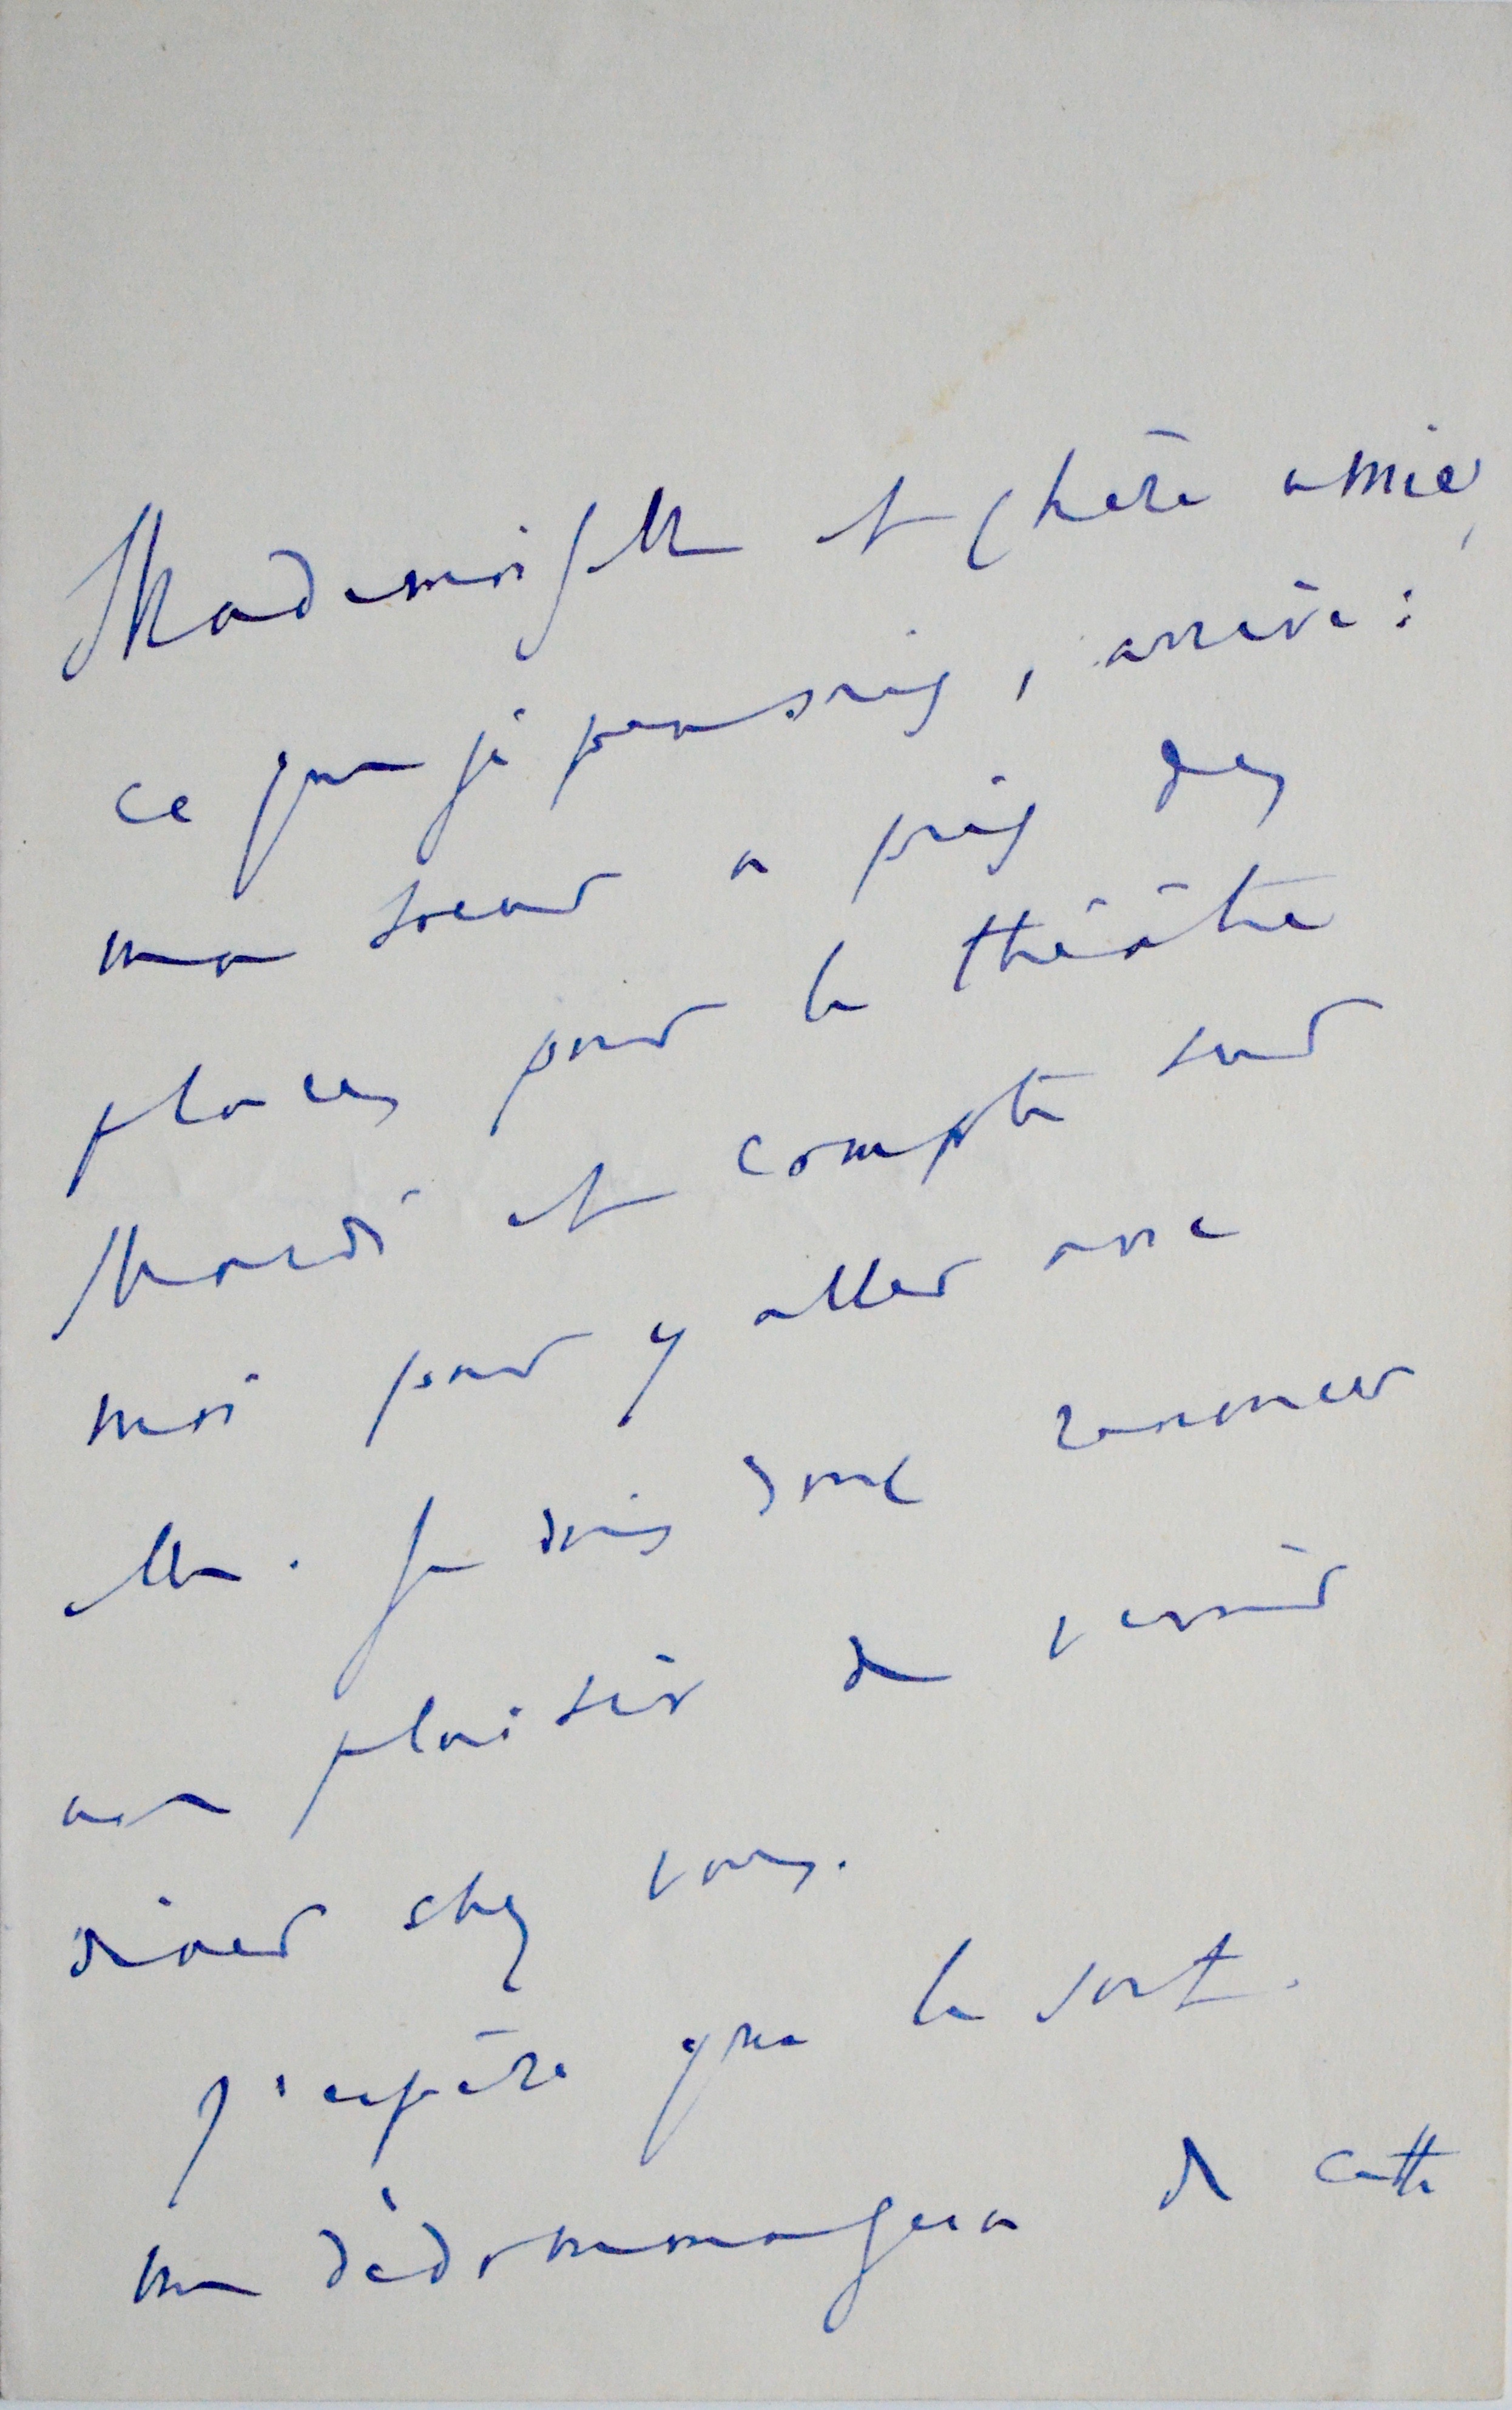 Mademoiselle et chère amie,
ce que je pensais, arrive :
ma soeur a pris des
places pour le théâtre
Mardi et compte sur
moi pour y aller avec
elle. Je dois donc renoncer
au plaisir de venir
dîner chez vous.
J'espère que le sort
me dédommagera de cette